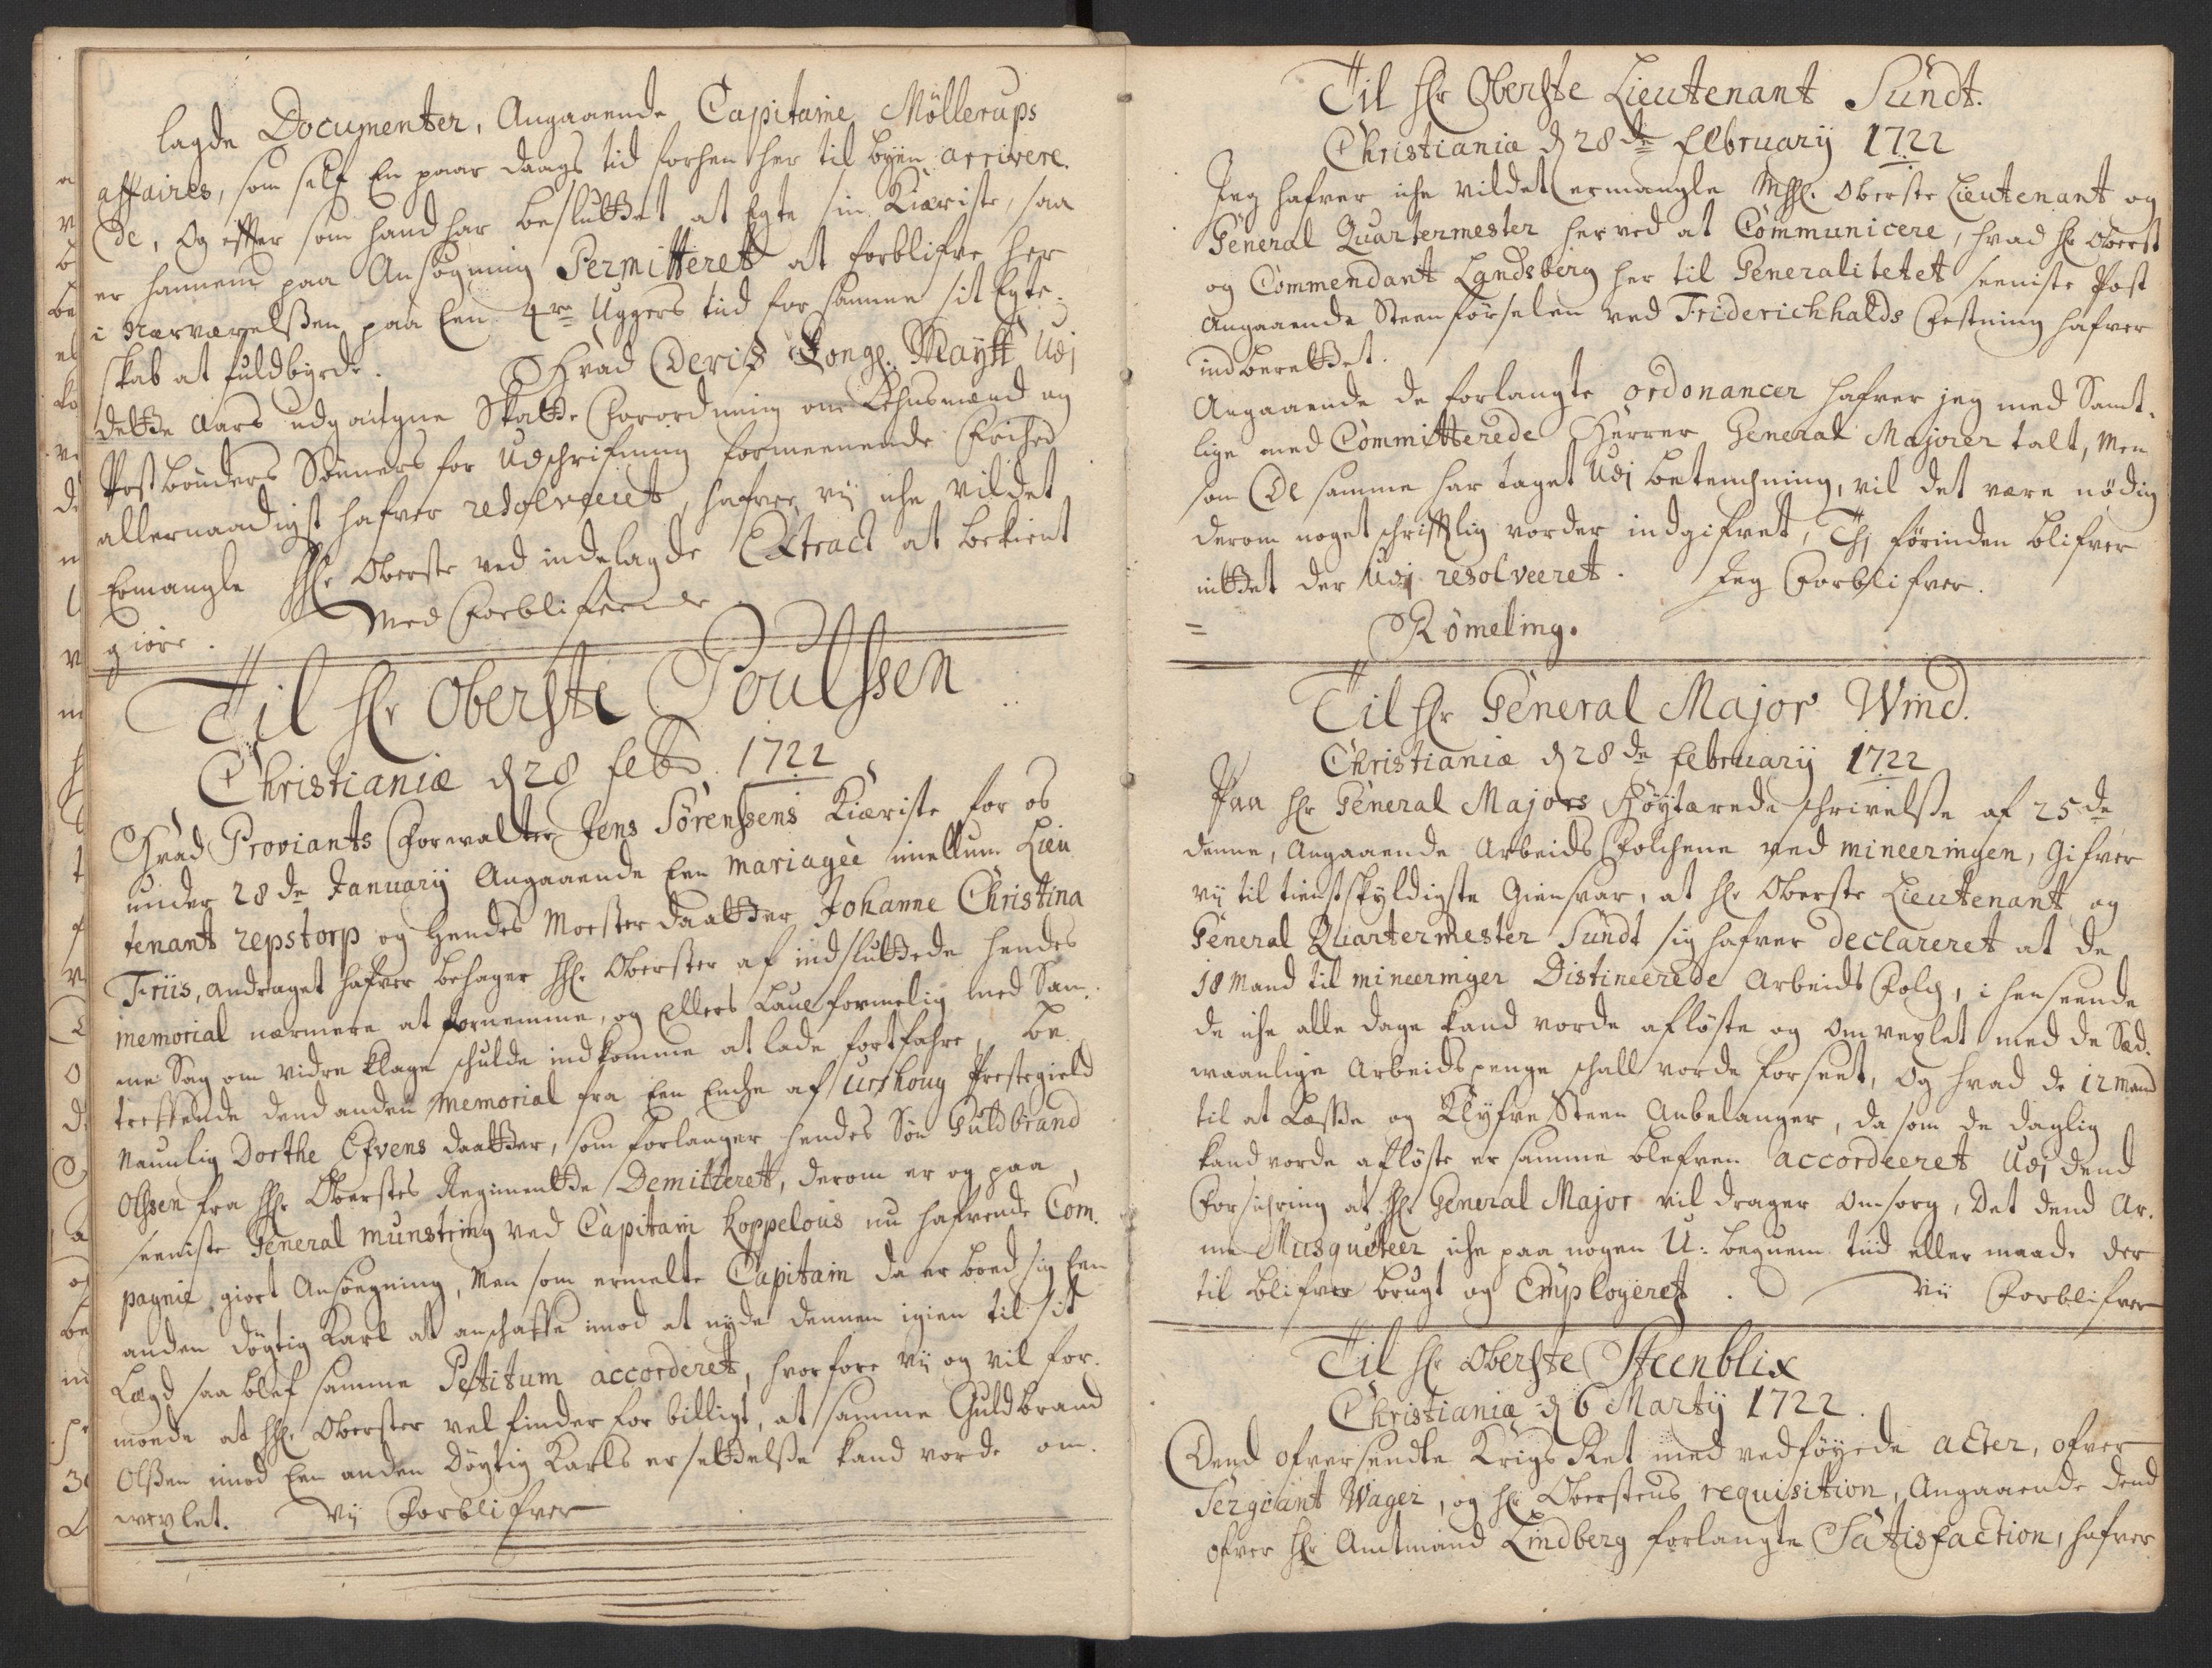 lagde Documenter, Angaaende Capitaine Möllerups
affaires, som self En paar daags tid forhen her til byen arrivere.
de, Og efter som hand har besluttet at Egte sin Kiæriste, saa
er hannem paa Ansögning Permitteret at forblifve her
i Nærværelßen paa Een 4re Uggers tid for samme sit Egte-
skab at fuldbyrde. Hvad Deris Kongl. Maytt Udj
dette Aars udgangne Skatte Forordning om Lehnsmænd og
Postbönders Sönners for Udschrifning formeenende Frihed
allernaadigst hafver resolveret, hafver vij iche vildet
Ermangle Hr Oberste ved indelagde Extract at bekient
giöre. Med Forblifvende
Til Hr Oberste Poulssen
Christiania d 28 feb. 1722
Hvad Proviants Forvalter Jens Sörenssens Kiæriste for os
under 28de January Angaaende Een mariage imellum Lieu
tenant repstorp og hendes Moster daatter Johanne Christina
Friis, andraget hafver behager Hr Oberster af indsluttede hendes
memorial nærmere at fornemme, og Ellers Lauformelig med Sam-
me Sag om vidre klage schulde indkomme at lade fortfahre, be-
treffende dend anden Memorial fra Een Enche af Urshoug Prestegield
Naunlig Dorthe Efvens daatter, som forlanger hendes Sön Guldbrand
Olssen fra Hr Oberstes Regimentde Demitteret, derom er og paa
seeniste General munstring ved Capitain Koppelous nu hafvende Com-
pagnie giort Ansöegning, Men som ermelte Capitain da er boed sig Een
anden dögtig Karl at anschaffe imod at nyde dennem igien til sit
Lægd saa blef samme Petitum accorderet, hvorfore vij og vil for-
moede at Hr Oberster vel finder for billigt, at samme Guldbrand
Olßen imod Een anden Döytig Karls ersettelße kand vorde om-
vexlet. Vij Forblifver
Til Hr Oberste Lieutenant Sundt.
Christiania d 28de February 1722
Jeg hafver iche vildet ermangle Mhh. Oberste Lieutenant og
General Quartermester herved at Communicere, hvad Hr Oberst
og Commendant Landsberg her til Generalitetet seeniste Post
Angaaende Steenförselen ved Friderichhalds Festning hafver
indberettet.
Angaaende de forlangte ordonancer hafver jeg med Samt-
lige med Committerede Herrer General Majorer talt, Men
som De samme har taget Udj betenchning, vil det være nödig
derom noget schrifftlig vorder indgifvet, Thj förinden blifver
intet der Udj resolveeret. Jeg Forblifver.
= Römeling.
Til Hr General Major Wind.
Christiania d 28de February 1722
Paa Hr General Majors Höytærede schrivelße af 25de
denne, Angaaende Arbeids Folchene ved mineeringen, Gifver
vij til tienstskyldigste Giensvar, at Hr Oberste Lieutenant og
General Quartermester Sundt sig hafver declareret at de
18 Mand til mineeringer Distineerede Arbeids Folch, i henseende
de iche alle dage kand vorde aflöste og Omvexlet med de Sæd-
vaanlige Arbeidspenge schall vorde forseet, Og hvad de 12 Mand
til at Læsse og Klyfve Steen Anbelanger, da som de daglig
kand vorde aflöste er samme blefven accordeeret Udj dend
Forsichring at Hr General Major vil drager Omsorg, Det dend Ar-
me Musqueteer iche paa nogen U: bequem tiid eller maade der
til blifver brugt og Employeret. Vij Forblifver
Til Hr Oberste Steenblix
Christiania d 6 Martij 1722.
Dend ofversendte Krigs Ret med vedföyede acter, ofver
Sergeant Wager, og Hr Oberstens requisition, Angaaende dend
ofver Hr Amtmand Lindberg forlangte Satisfaction, hafver